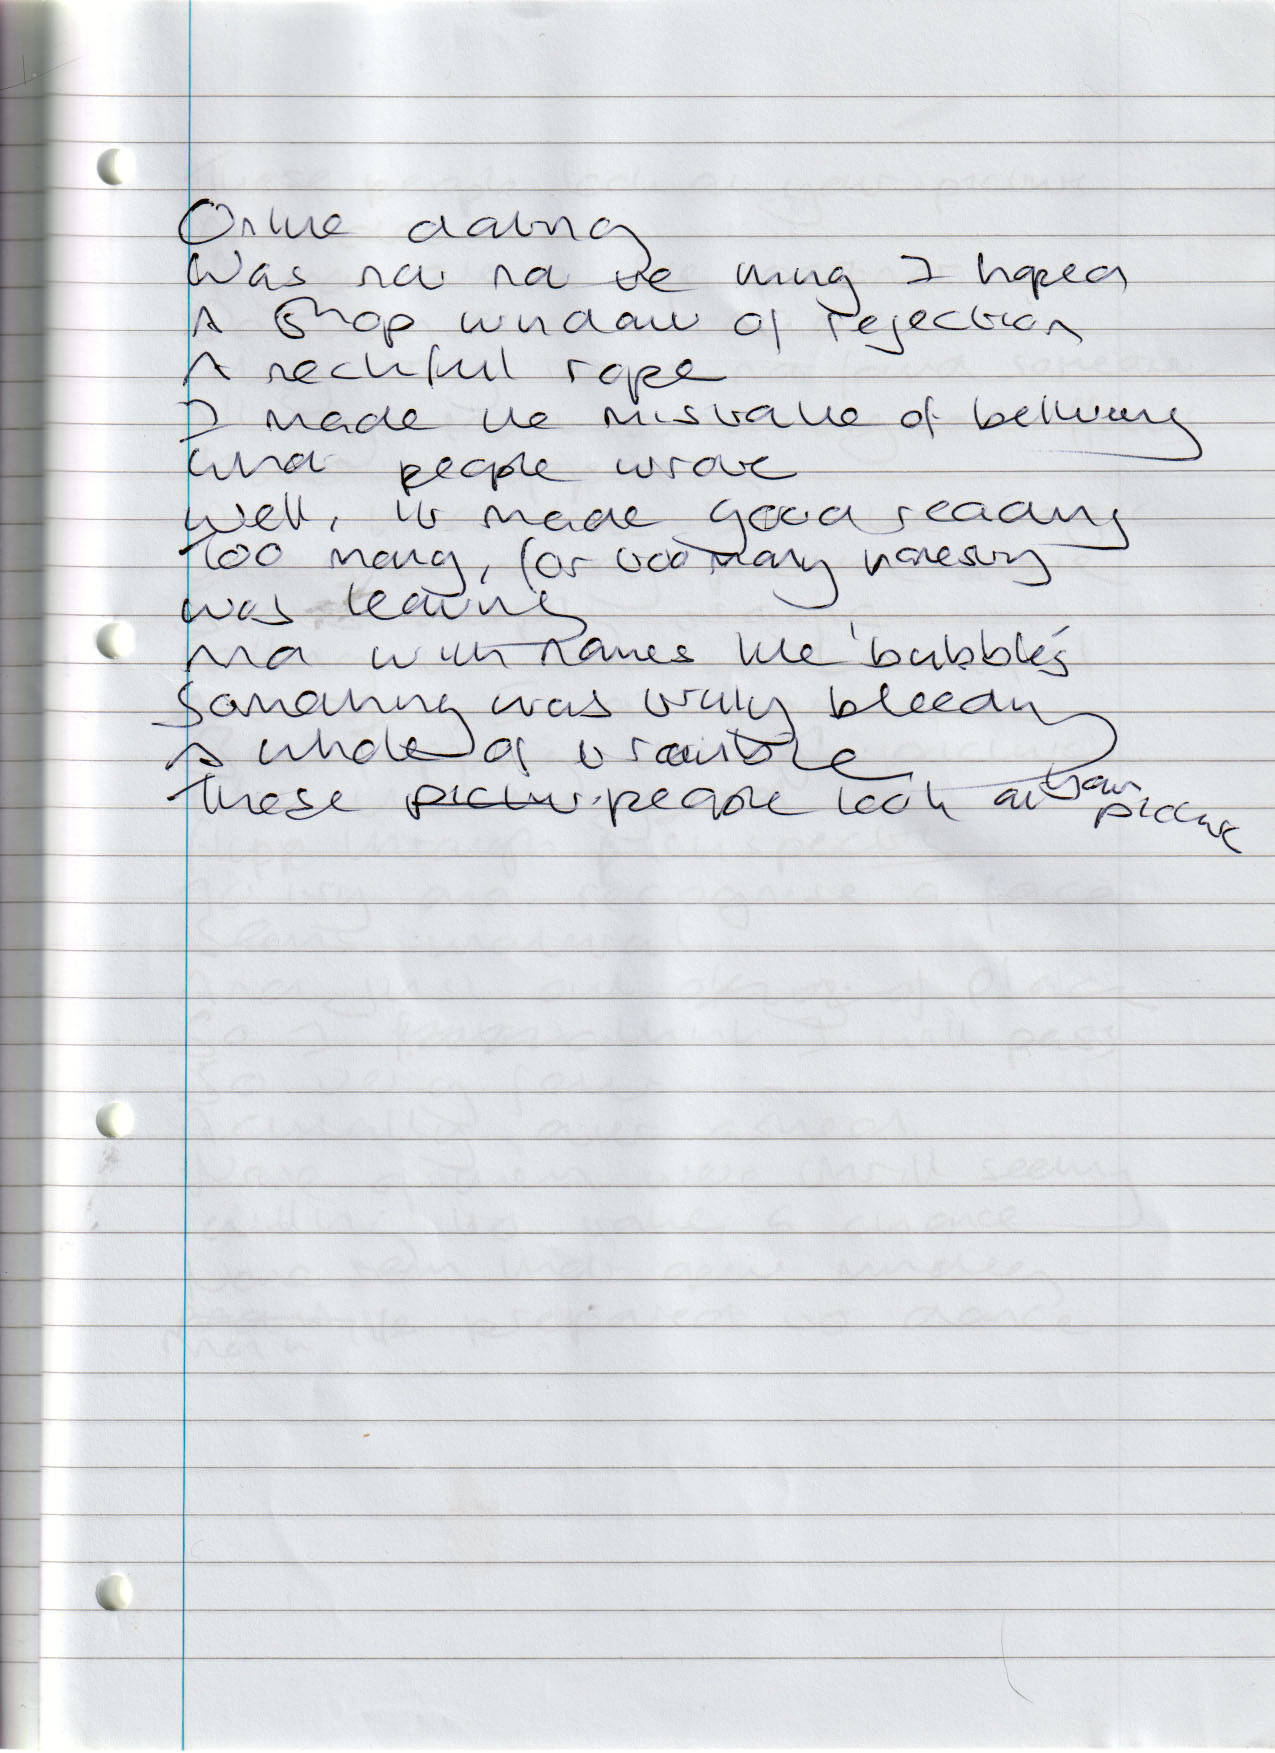 Online dating
Was not to be thing I hoped
A Shop window of rejection
A neckful rope
I made the mistake of believing
what people wrote
Well, it made good reading
Too many, for too many honesty
was leaving
And with names like 'bubbles'
Something was truly bleeding
A whole of trouble
These people look at your picture